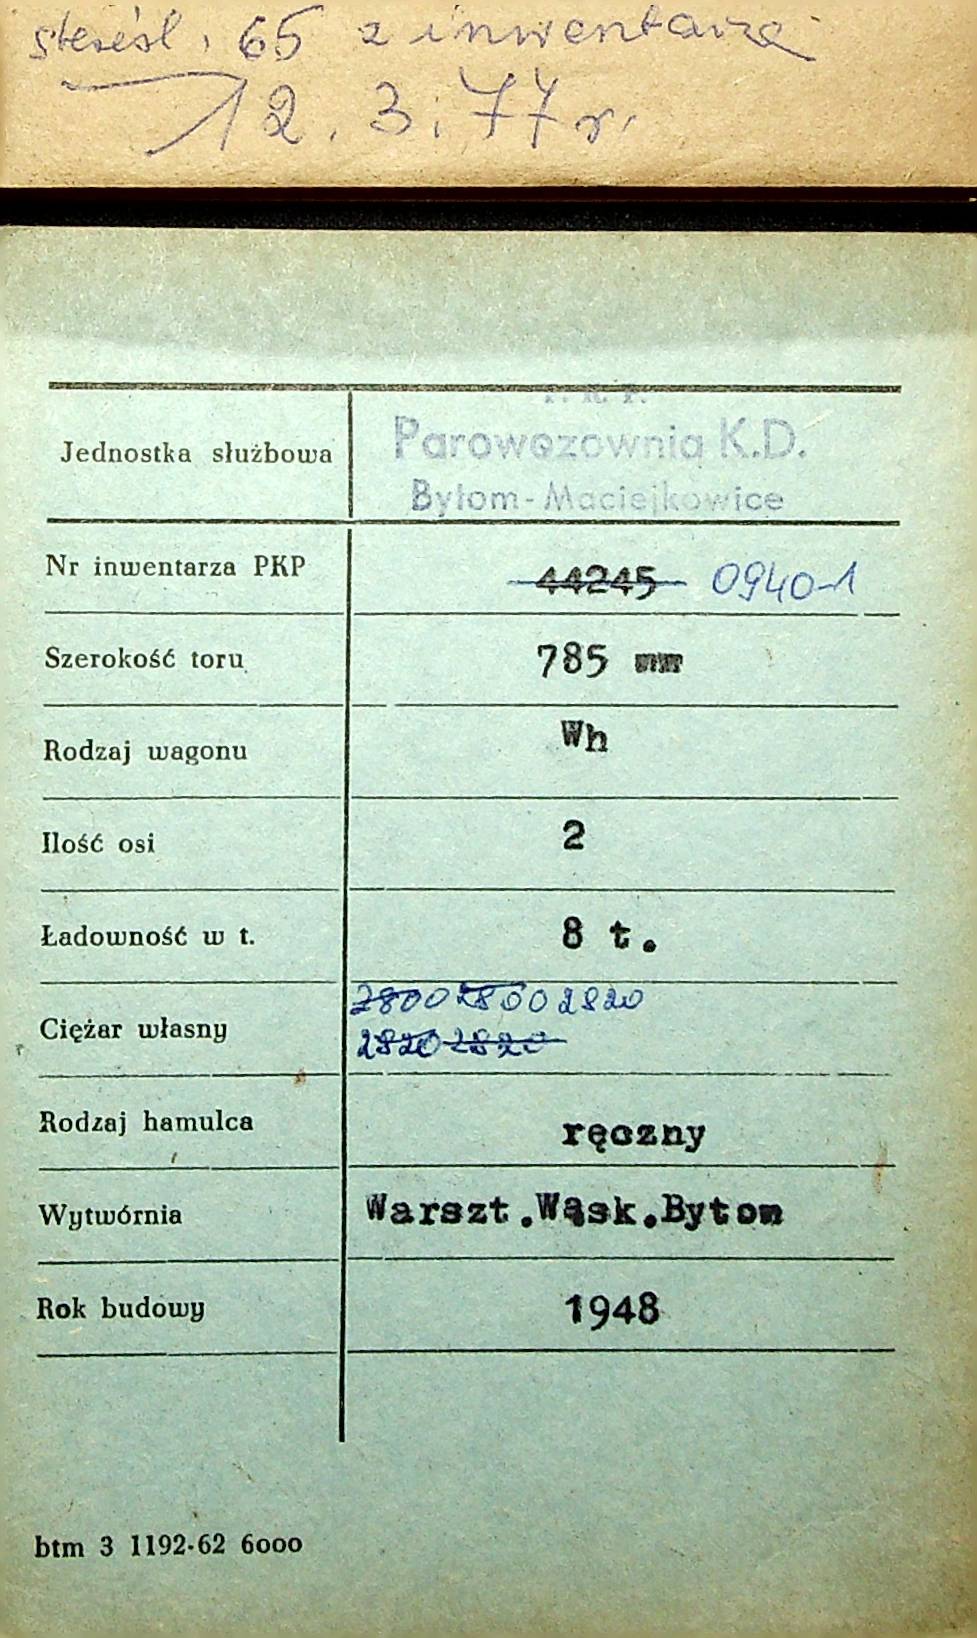 65 z inwentarza
12.3.77 r.
P. K. P.
Jednostka służbowa Parowozownia K.D.
Bytom-Maciejkowice
Nr inwentarza PKP 44245 0940-1
Szerokość toru 785 mm
Rodzaj wagonu Wh
Ilość osi 2
Ładowność w t. 8 t.
2800 2800 2820
Ciężar własny 2820 2820
Rodzaj hamulca ręczny
Wytwórnia Warszt.Wąsk.Bytom
Rok budowy 1948
btm 3 1192-62 6000